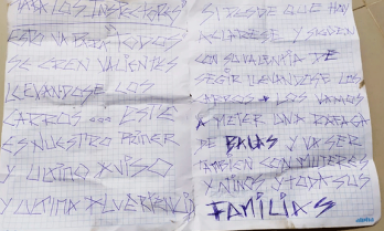 PARA LOS INSTRUCTORES
ESTO VA PARA TODOS
SE CREN VALIENTES
LLEVANDOSE LOS
CARROS ... ESTE
ES NUESTRO PRIMER
Y ULTIMO AVISO
Y ULTIMA ADVERTENCIA
SI DESDE QUE HAY
ACLARESE Y SIGDEN
CON SU VALENTIA DE
SEGIR LLEVANDOSE LOS
CARROS LOS VAMOS
A METER UNA RAFAGA
DE BALAS Y VA SER
TAMBIEN CON MUJERES
Y NIÑOS Y TODA SUS
FAMILIAS